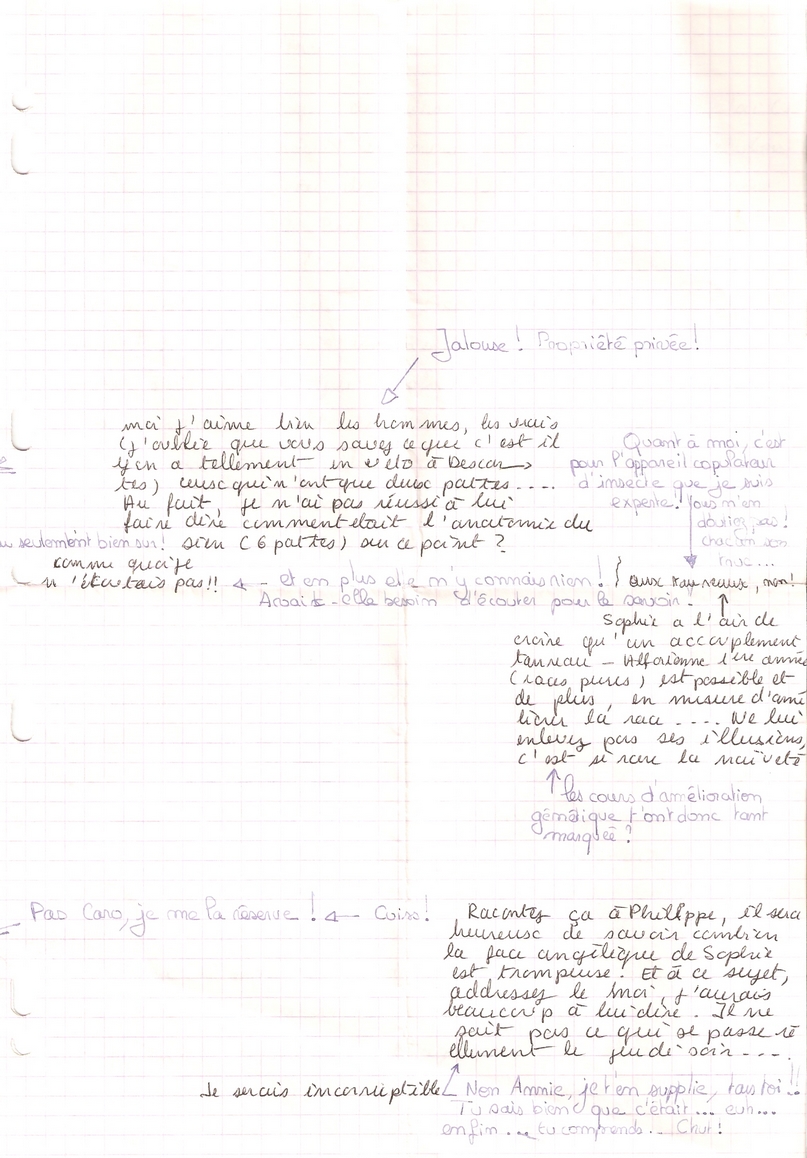 Jalouse ! Propriété privée !
moi j'aime bien les hommes, les vrais
(j'oublie que vous savez ce que c'est il
y en a tellement en véto à Descar->
tes) ceux qui n'ont que deux pattes....
Au fait, je n'ai pas réussi à lui
faire dire comment était l'anatomie du
sien (6 pattes) sur ce point ?
seulement bien sur !
Quant à moi, c'est
pour l'appareil copulateur
d'insecte que je suis
experte ! Vous n'en
doutiez pas !
chacun son
truc...
comme que je
n'écoutais pas !!
- et en plus elle m'y connais rien !
Avait-elle besoin d'écouter pour le savoir.
aux taureaux, non !
Sophie a l'air de
croire qu'un accouplement
taureau - Alforienne 1ère année
(races pures) est possible et
de plus, en mesure d'amé
liorer la race .... Ne lui
enlevez pas ses illusions,
c'est si rare la naïveté
les cours d'amélioration
génétique t'ont donc tant
masquée ?
Pas Caro, je me la réserve !
Cuiss !
Racontez ça à Philippe, il sera
heureux de savoir combien
la face angélique de Sophie
est trompeuse ! Et à ce sujet,
addressez le moi, j'aurais
beaucoup à lui dire. Il ne
sait pas ce qui se passe ré
ellement le jeudi soir ....
Je serais incorruptible
Non Annie, je t'en supplie, tais toi !!
Tu sais bien que c'était ... euh...
enfin ... tu comprends... Chut !